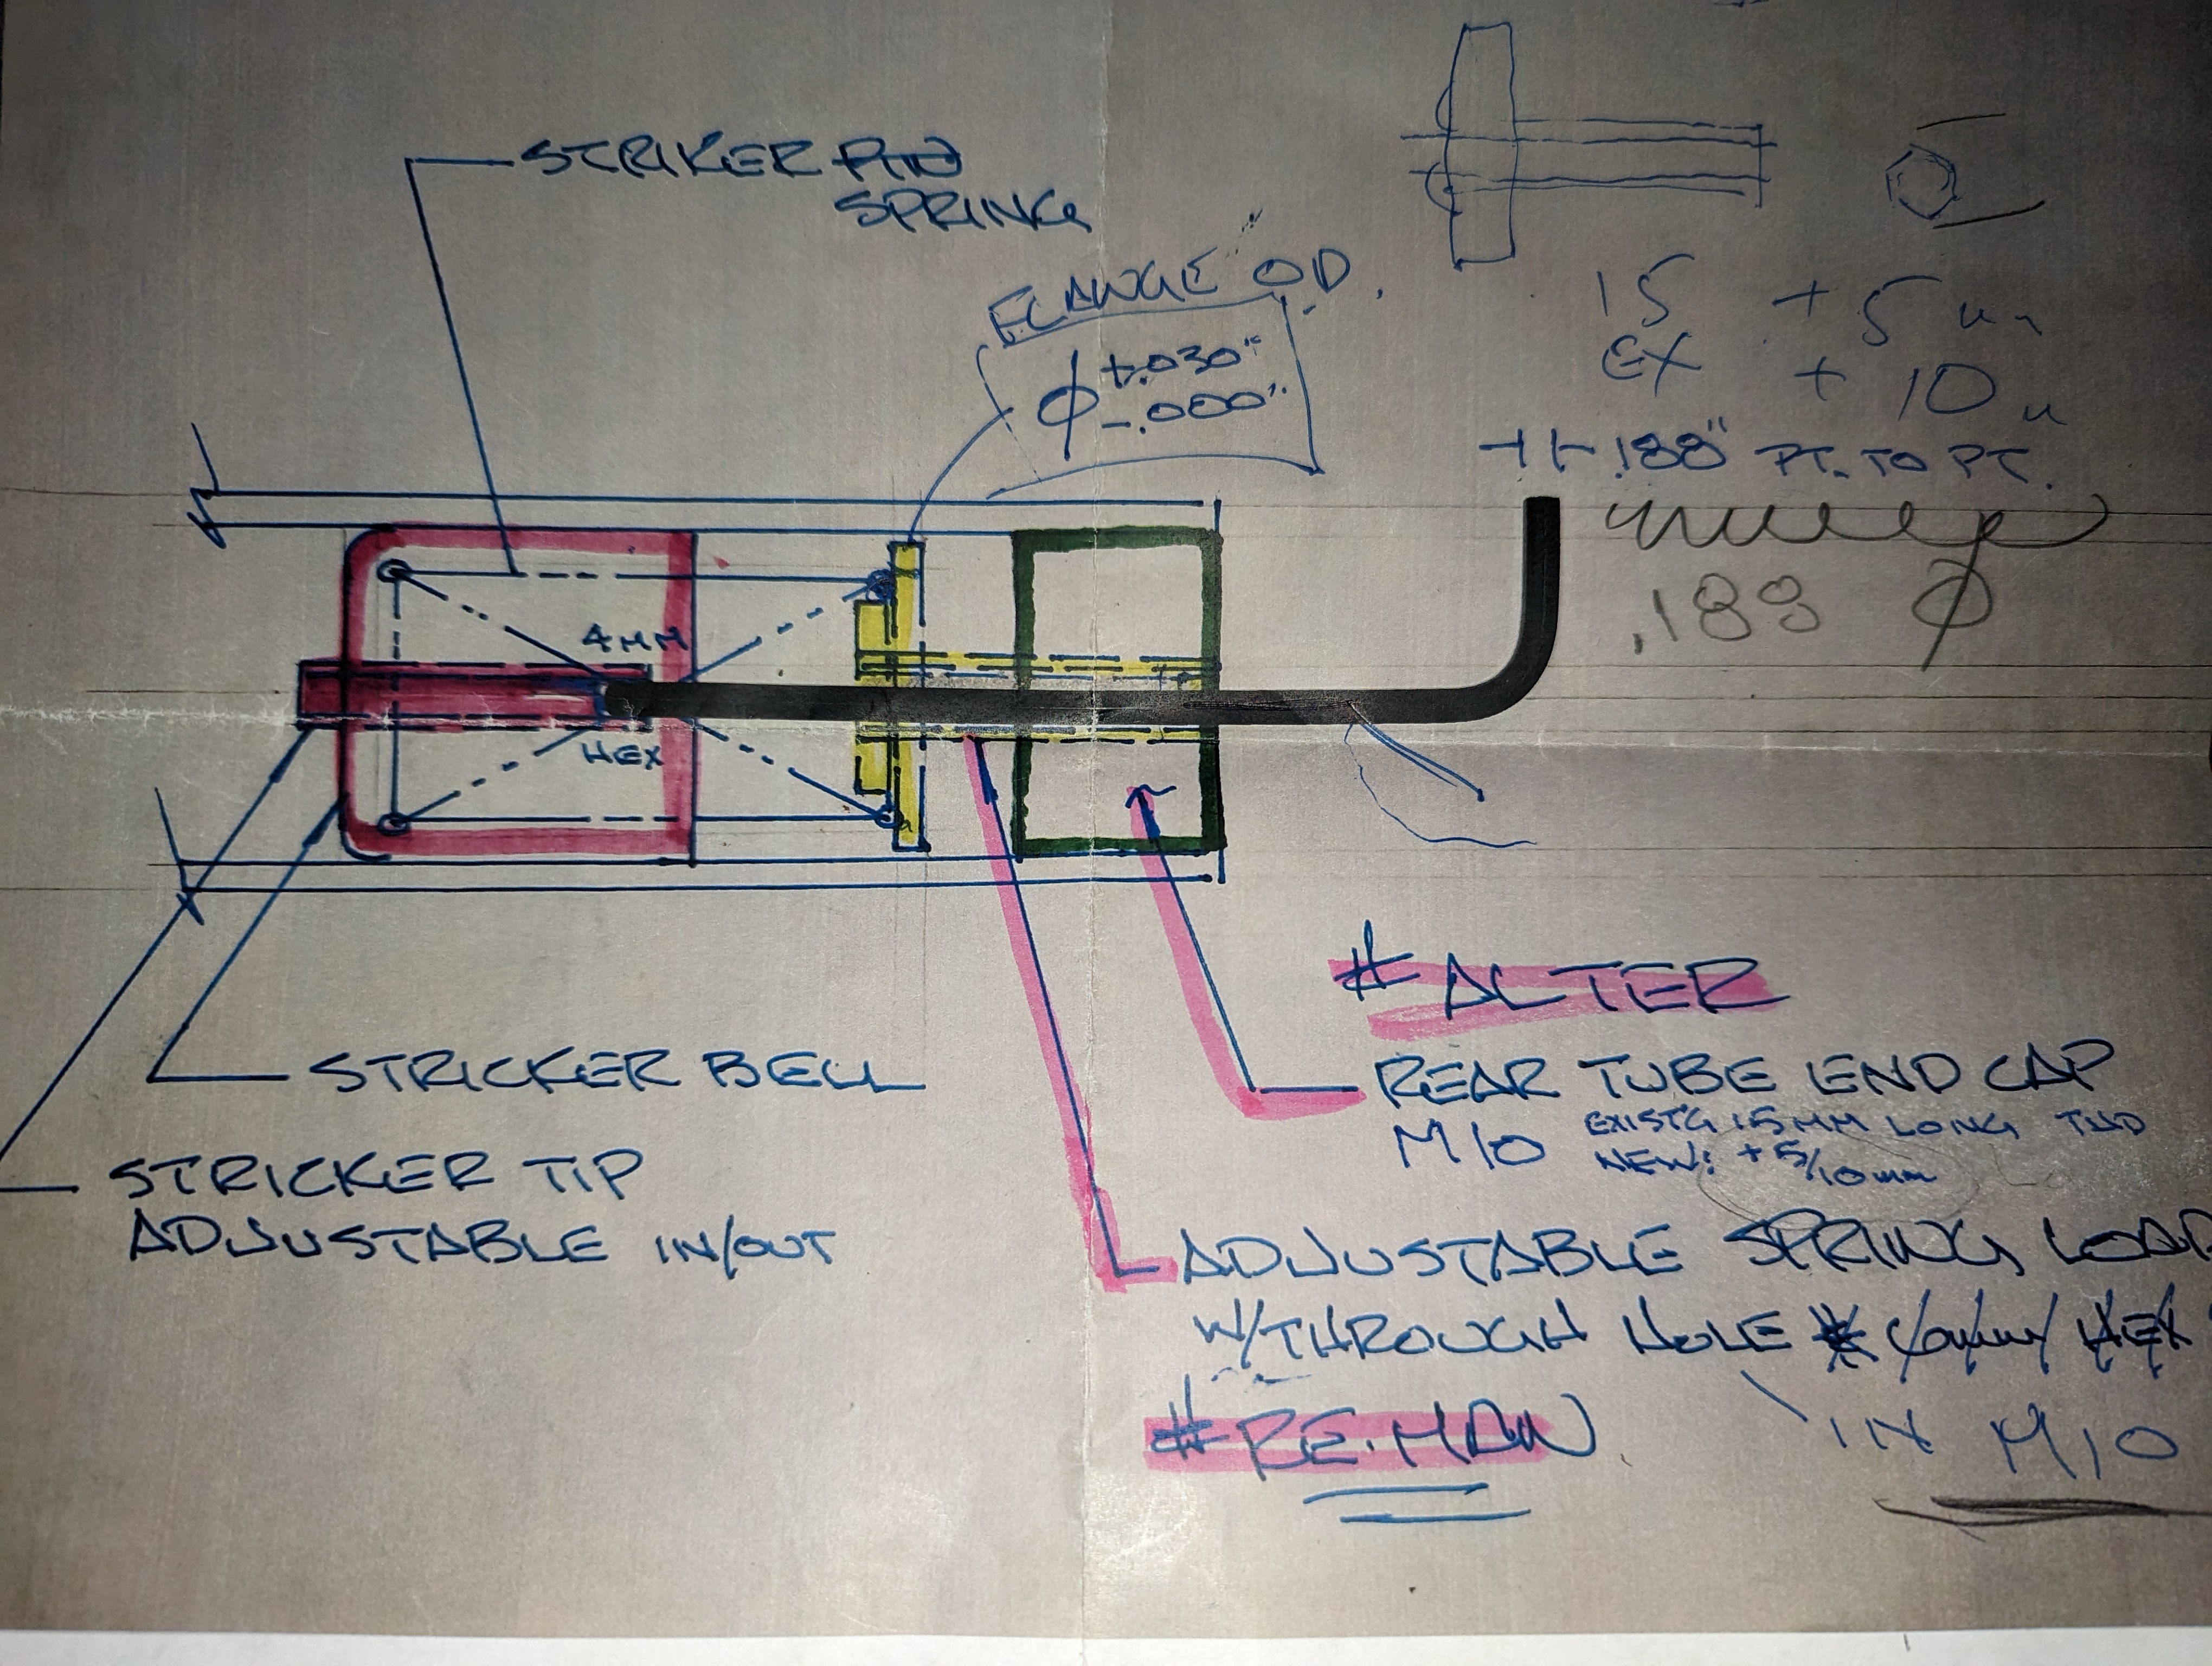 STRIKER PIN
SPRING
FLANGE O.D.
Ø +.030"
-.000"
15 + 5 m
EX + 10 m
.188" PT. TO PT.
.188 Ø
4MM
HEX
# ALTER
REAR TUBE END CAP
M10 EXIST'G 15MM LONG THD
NEW: +5/10mm
STRICKER BELL
STRICKER TIP
ADJUSTABLE IN/OUT
ADJUSTABLE SPRING LOAD
W/THROUGH HOLE HEX
# RE-MAN
IN M10